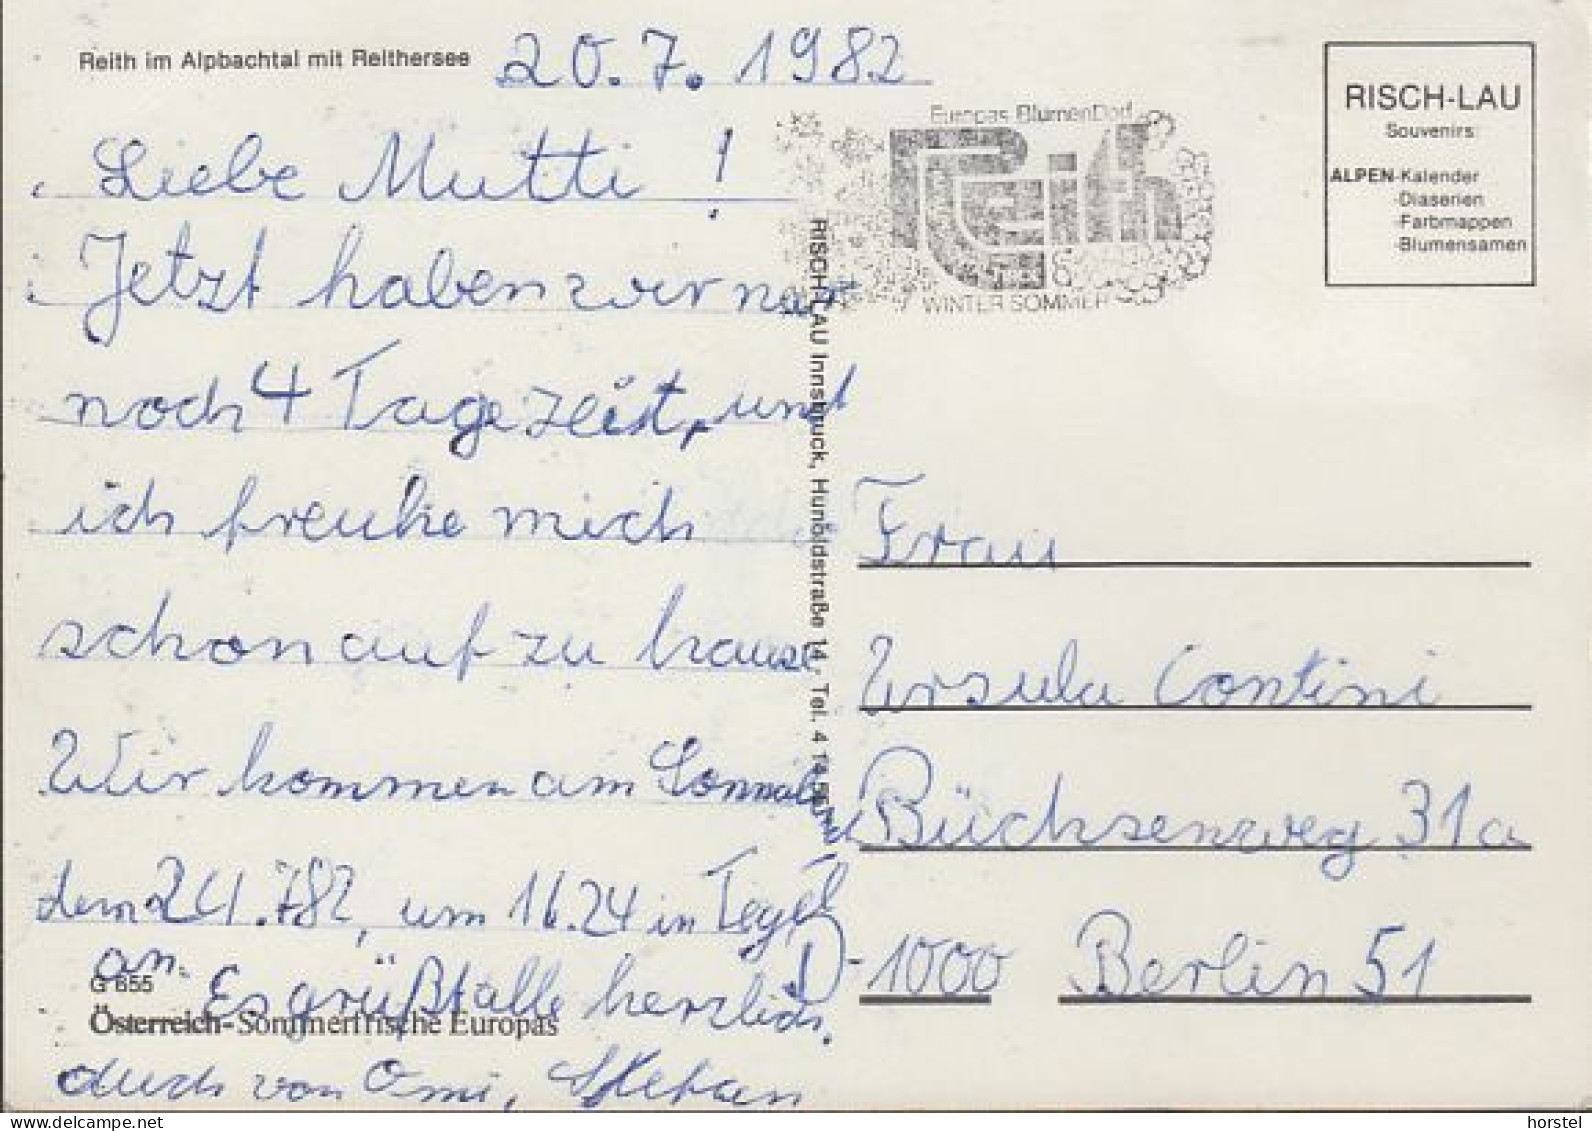 Reith im Alpbachtal mit Reithersee
20.7.1982
Liebe Mutti!
Jetzt haben wir nur
noch 4 Tage zeit, und
ich freuhe mich
schon auf zu hause
Wir kommen am Sonnabend
dem 24.7.82, um 16.24 in Tegel
an. Es grüßt alle herzlich.
auch von Omi, Stefan
G 655
Österreich-Sommerfrische Europas
RISCH-LAU Innsbruck, Hunoldstraße 14, Tel. 4 14 51
Europas BlumenDorf
Reith
WINTER SOMMER
RISCH-LAU
Souvenirs:
ALPEN-Kalender
-Diaserien
-Farbmappen
-Blumensamen
Frau
Ursula Contini
Büchsenweg 31a
D-1000 Berlin 51
www.delcampe.net
horstel